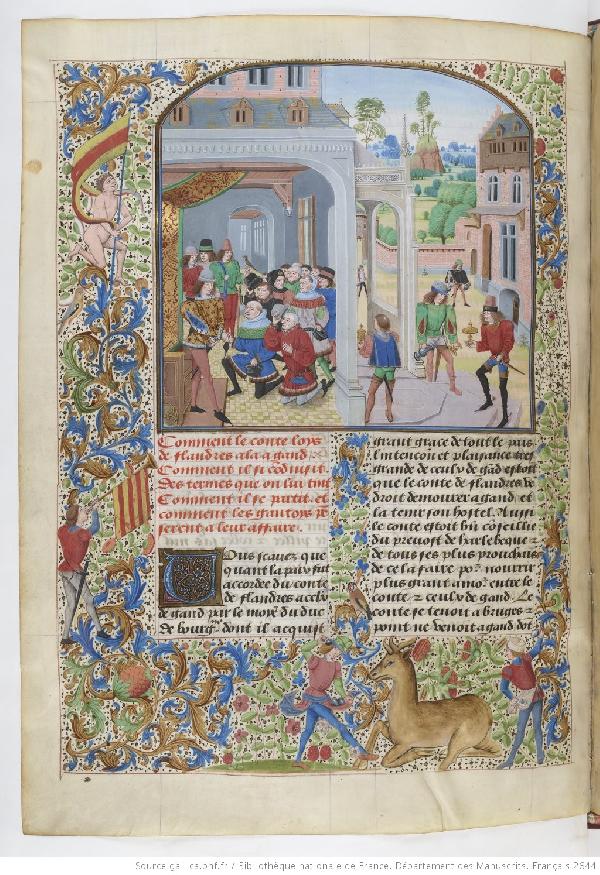 Comment le conte loys
de flandres ala a gand
Comment il si conduisit
Des termes que on lui tint
Comment il se partit et
comment les gantois
serent a leur affaire.
Vous scauez que
quant la paix fut
accordee du conte
de flandres a ceulx
de gand par le moyen du duc
de bourgne dont il acquist
grant grace de tout le pais
lintencion et plaisance tres
grande de ceulx de gad estoit
que le conte de flandres de
droit demourer a gand et
la tenir son hostel. Aussi
le conte estoit bn cōseillie
du preuost de harlebeque
de tous ses plus prouchais
de ce la faire por nourrir
plus grant amor entre le
conte et ceulx de gand. Le
conte se tenoit a bruges
point ne venoit a gand dot
Source gallica.bnf.fr / Bibliothèque nationale de France. Département des Manuscrits. Français 2644